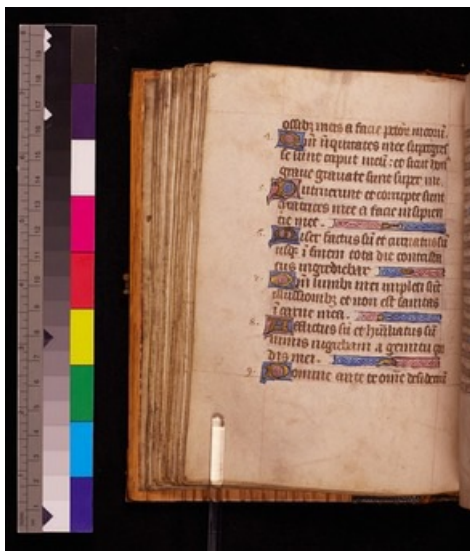 ossibꝫ meis a facie pctoꝝ meoꝝ.
Qm̄ iiquitates mee supergres
se sunt caput meū: et sicut hon
graue grauate sunt super me.
Putruerunt et corrupte sunt
cicatrices mee a facie insipien
tie mee.
Miser factus sū et curuatus sū
usqꝫ ī finem tota die contrista
tus ingrediebar
Qm̄ lumbi mei impleti sūt
illusionibꝫ et non est sanitas
ī carne mea.
Afflictus sū et humiliatus sū
nimis rugiebam a gemitu cor
dis mei.
Domine ante te om̄e desideriū